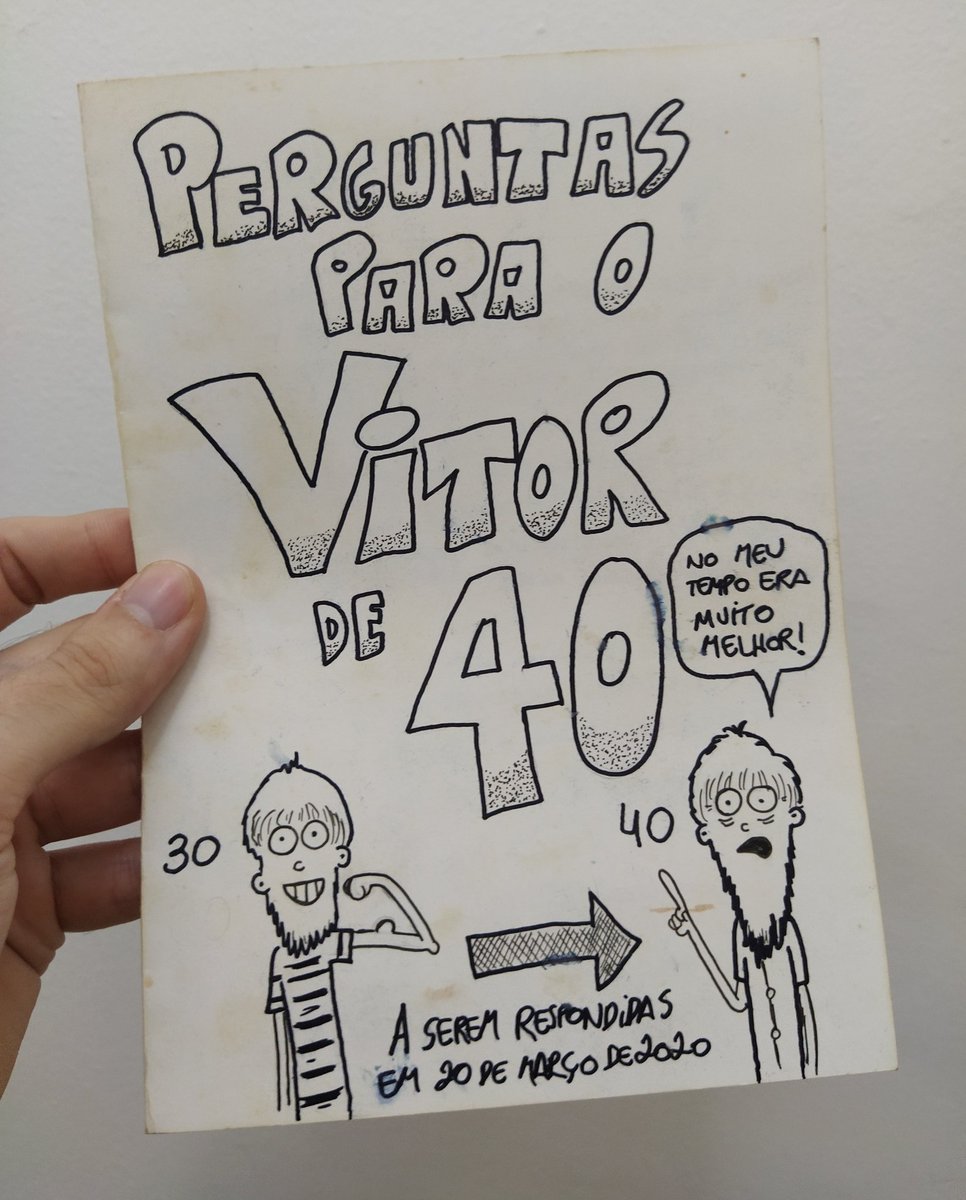 PERGUNTAS
PARA O
ViTOR
DE 40
NO MEU
TEMPO ERA
MUiTO
MELHOR!
30
40
A SEREM RESPONDiDAS
EM 20 DE MARÇO DE 2020